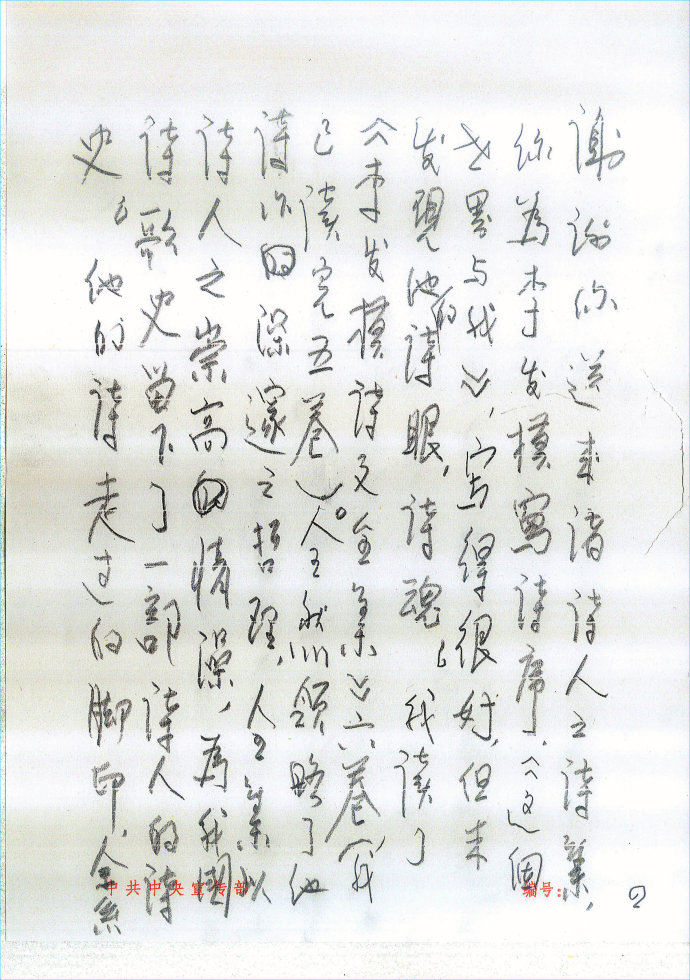 谢谢你送来诸诗人之诗集，
你為李发模写诗序了，《这個
世界与我》，写得很好，但未
发現他的诗眼，诗魂。我读了
《李发模诗文全集》六卷（我
已读完五卷）。然領略了他
诗作的深邃之哲理，以
诗人之崇高的情操，為我國
诗歌史留下了一部诗人的诗
史。他的诗走过的脚印，
中共中央宣传部
编号：
2